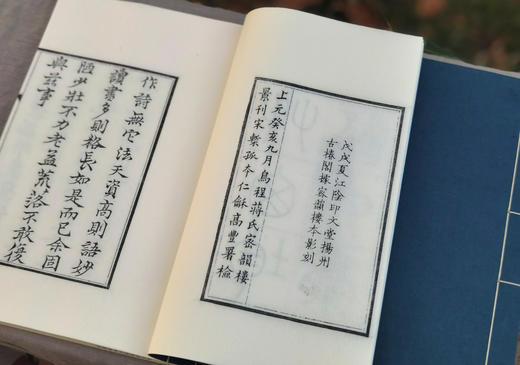 戊戌夏江陰印文堂揚州
古椿閣據密韻樓本影刻
上元癸亥九月烏程蔣氏密韻樓
景刊宋槧孤本仁龢高豐署檢
作詩無它法天資高則語妙
讀書多則格長如是而已余固
陋少壯不力老益荒落不敢復
與茲事